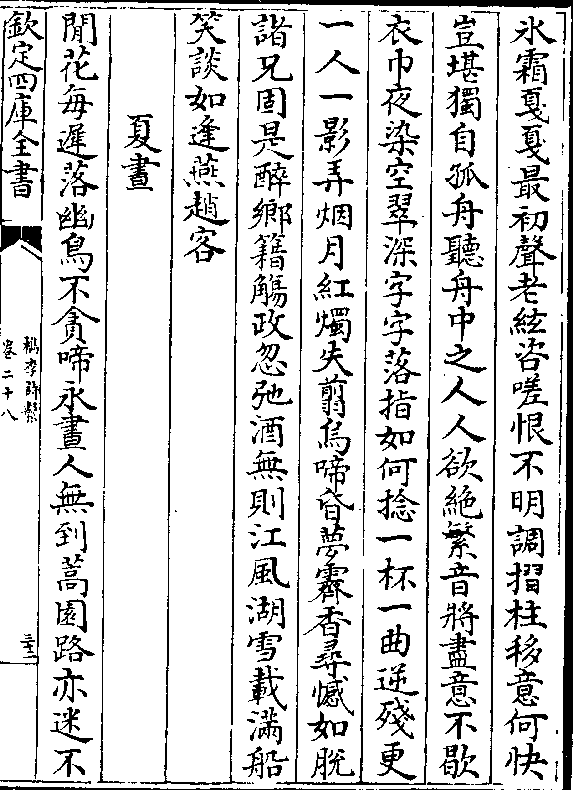 氷霜戛戛最初聲老絃咨嗟恨不明調摺柱移意何快
豈堪獨自孤舟聽舟中之人人欲絶繁音將盡意不歇
衣巾夜染空翠深字字落指如何捻一杯一曲逆殘更
一人一影弄烟月紅燭失翦烏啼昏夢霽香尋憾如脫
諸兄固是醉鄉籍觴政忽弛酒無則江風湖雪載滿船
笑談如逢燕趙客
夏晝
閒花每遲落幽鳥不貪啼永晝人無到蒿園路亦迷不
欽定四庫全書
檇李詩繫
卷二十八
三十三